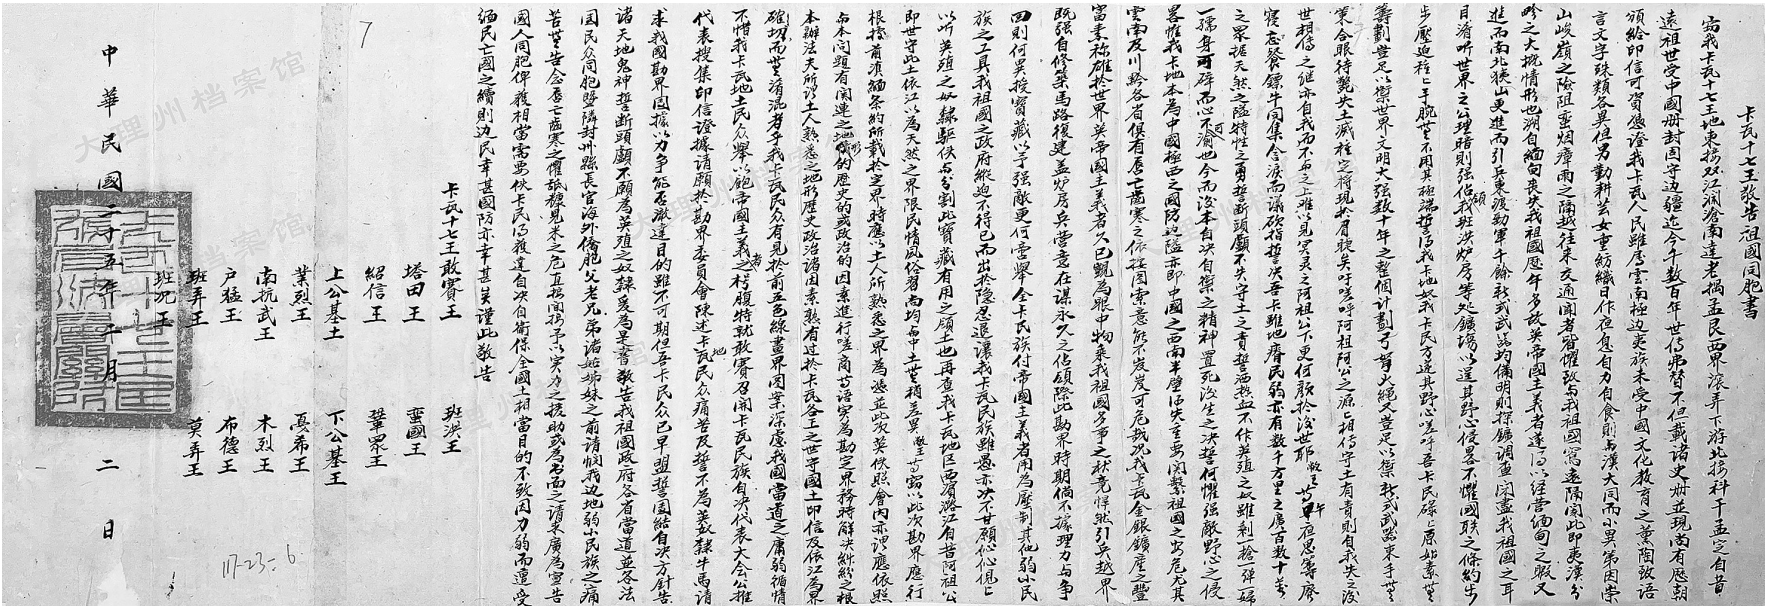 卡瓦十七王敬告祖國同胞書
竊我卡瓦十七王地東接双江瀾滄南達老撾孟艮西界滾弄下游北接科干孟定自昔
遠祖世受中國册封固守边疆迄今千數百年世傳弗替不但載諸史册並現尚有歷朝
頒給印信可資憑證我卡瓦人民雖居雲南極边夷族未受中國文化教育之薰陶致語
言文字殊類各異但男勤耕芸女重紡織日作夜息自力自食則與漢大同而小異第因崇
山峻嶺之險阻蛮烟瘴雨之隔越往來交通聞者皆懼致與我祖國窵遠隔閡此即夷漢分
畛之大概情形也溯自緬甸喪失我祖國歷年多故英帝國主義者遂得以經営緬甸之暇又
進而南北猍山更進而引兵東渡勒軍千餘新式武器均備明則探鑛調查閉盡我祖國之耳
目淆听世界之公理暗則强佔我班洪炉房等处鑛場以逞其野心侵畧不懼國联之條約步
步壓迫種種手腕無不用其極端誓得我卡地奴我卡民方遂其野心嗟吁吾卡民碌碌原始素無
籌劃豈足以禦世界文明大强数十年之整個計劃弓弩火繩又豈足以禦新式武器束手無
策合眼待斃失土滅種之将現於眉睫矣呼嗟呼阿祖阿公之源源相传守土有責則自我失之後
世相傳之継亦自我而不有之唯以見冥灵之阿祖公下更何顏於後世耶敝王等日午夜思籌廢
寢忘餐鏢牛同集含淚而議砍指誓决吾卡雖地瘠民弱亦有数千方里之廣百数十萬
之眾據天然之隘特性之勇誓断頭顱不失守土之責誓洒热血不作英殖之奴雖剩一槍一彈一婦
一孺身可碎而心不可渝也今而後本自决自禦之精神置死後生之决誓何懼强敵野心之侵
畧惟我卡地本為中國極西之國防边隘亦即中國之西南半壁得失至要関繫祖國之安危尤其
雲南及川黔各省俱有唇亡齒寒之依按图索意能不岌岌可危哉况我卡瓦金銀鑛產之豐
富素称雄於世界英帝國主義者久已覬為眼中物乘我祖國多事之秋竟悍然引兵越界
既强自修築馬路復建盖炉房兵营意在謀永久之佔領際此勘界時期倘不據理力與争
回則何異授寳藏以予强敵更何啻舉全卡民族付帝國主義者用為壓制其他弱小民
族之工具我祖國之政府縱迫不得已而出於隐忍退讓我卡瓦民族雖愚亦决不甘願伈伈俔俔
以听英殖之奴隸驅佚與分割此寳藏有用之領土也再查我卡瓦地区西濱潞江有昔阿祖公
即世守此土依江以為天然之界限民情風俗習尚均與中土無稍差異敝王等窃以此次勘界應行
根據前滇緬条約所载於定界時應以土人所熟悉之界為憑並此次英佚照會内亦谓應依照
與本问題有関連之地形的歷史的或政治的因素進行嗟商等语寔為勘定界務時解决糾紛之根
本辦法夫所谓土人熟悉之地形歷史政治諸因素熟有过於卡瓦各王之世守國土印信及依江為界
確切而無淆混者乎我卡瓦民众有見於前五色線畫界图案深慮我國當道之庸弱循情
不惜我卡瓦地土民众舉以飽帝國主義者之枵腹特就敢賽召開卡瓦民族自决代表大会公推
代表搜集印信證據請願於勘界委員會陳述卡瓦地民众痛苦及誓不為英奴隸牛馬請
求我國勘界同據以力争能否澈達目的雖不可期但吾卡民众已早盟誓團結自决方針告
诸天地鬼神誓断頭顱不願為英殖之奴隸爰為是書敬告我祖國政府各省當道並各法
团民众同胞暨隣封州縣長官海外僑胞父老兄弟諸姑姊妹之前请悯我边地弱小民族之痛
苦無告念唇亡齒寒之懼舐糠見米之危直接間接予以实力之援助或為书面之请求廣為宣告
國人同胞俾獲相當需要佚卡民得獲達自决自衛保全國土相當目的不致因力弱而遭受
緬民亡國之續則边民幸甚國防亦幸甚矣谨此敬告
卡瓦十七王敢賽王 班洪王
塔田王 蛮國王
紹信王 鞏眾王
上公基土 下公基王
業烈王 戛希王
南抗武王 木烈王
户猛王 布德王
班弄王 莫弄王
班况王
中華民國二十五年 十月 二日
7
117-23=6
大理州档案馆